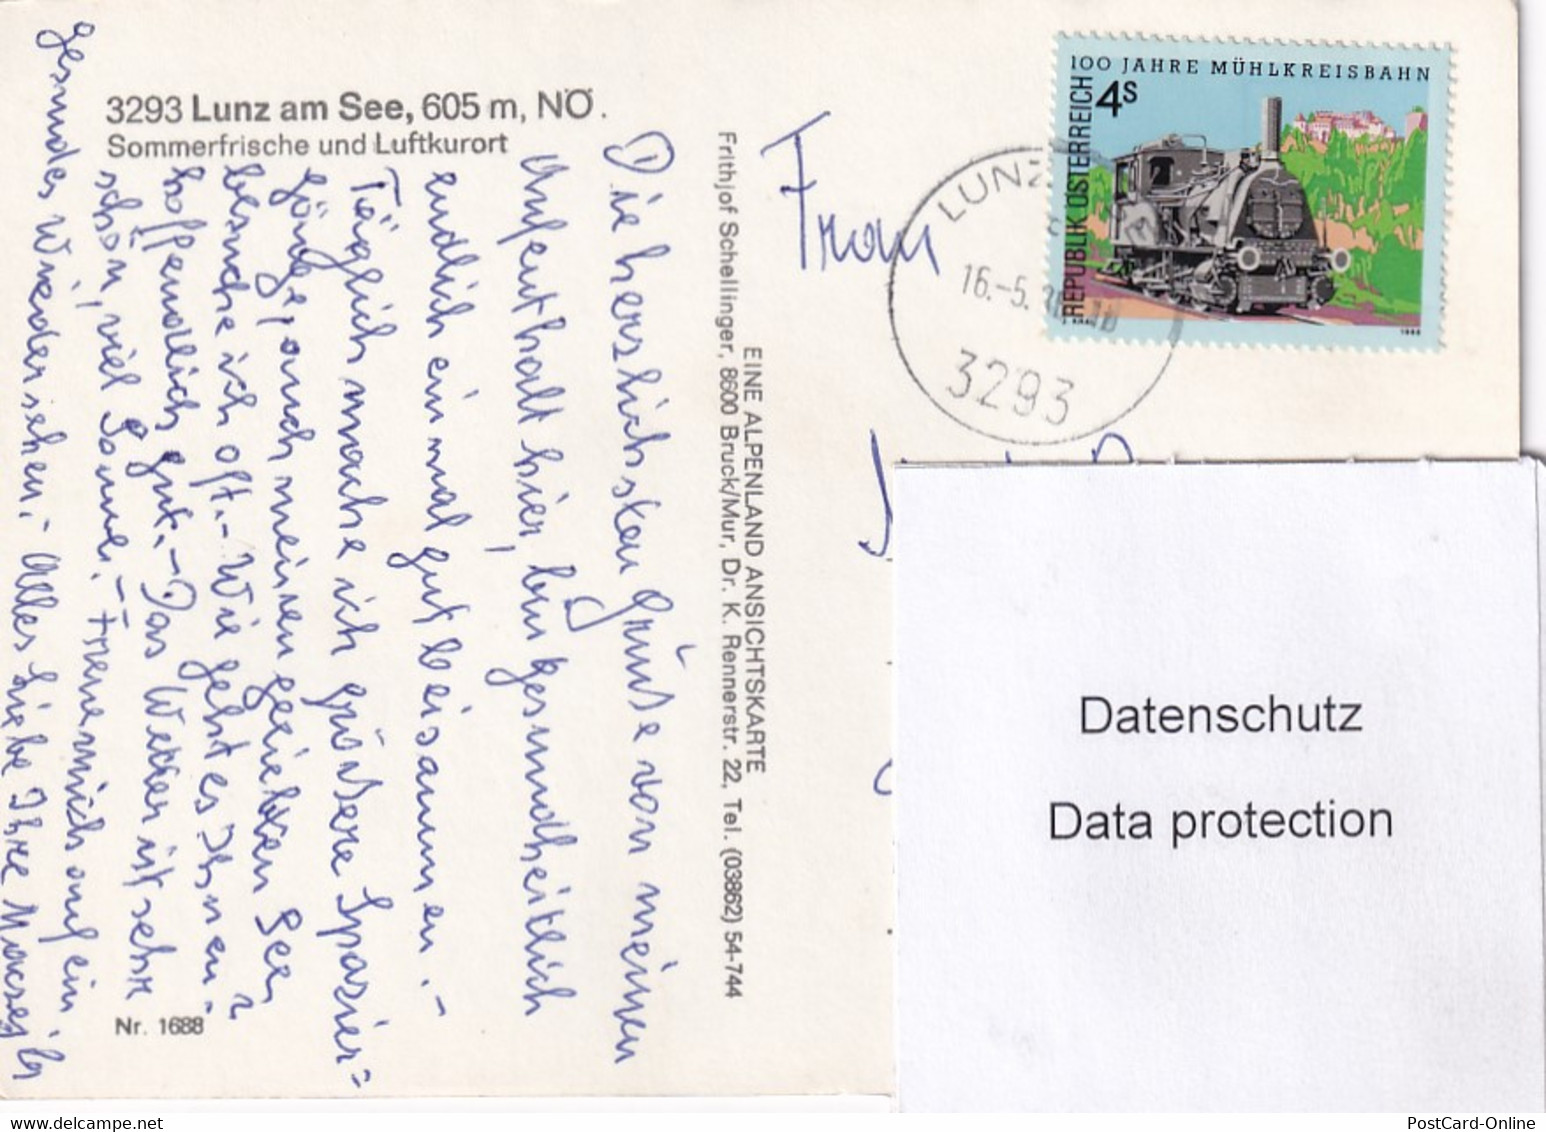 3293 Lunz am See, 605 m, NÖ.
Sommerfrische und Luftkurort
Die herzlichsten Grüße von meinem
Aufenthalt hier, bin gesundheitlich
endlich einmal gut beisammen.-
Täglich mache ich größere Spazier=
gänge, auch meinen geliebten See
besuche ich oft.- Wie geht es Ihnen?
hoffendlich gut.- Das Wetter ist sehr
schön, viel Sonne.- Freue mich auf ein
gesundes Wiedersehen. Alles liebe Ihre
Nr. 1688
EINE ALPENLAND ANSICHTSKARTE
Frithjof Schellinger, 8600 Bruck/Mur, Dr. K. Rennerstr. 22, Tel. (03862) 54-744
Frau
LUNZ
16.-5.
3293
100 JAHRE MÜHLKREISBAHN
4S
REPUBLIK ÖSTERREICH
1988
Datenschutz
Data protection
PostCard-Online